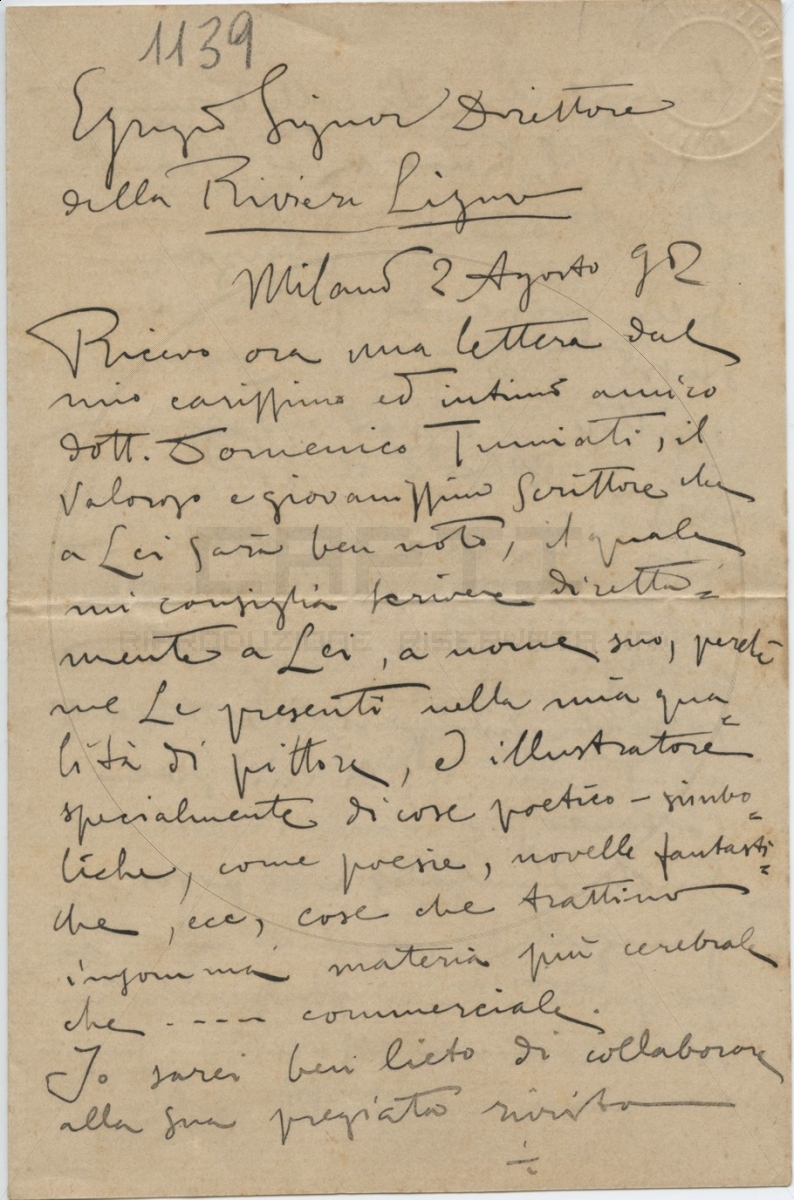 1139
Egregio Signor Direttore
della Riviera Ligure
Milano 2 Agosto 902
Ricevo ora una lettera dal
mio carissimo ed intimo amico
dott. Domenico Tumiati, il
valoroso e giovanissimo scrittore che
a Lei sarà ben noto, il quale
mi consiglia scrivere diretta=
mente a Lei, a nome suo, perchè
me Le presenti nella mia qua=
lità di pittore, e illustratore
specialmente di cose poetico-simbo=
liche, come poesie, novelle fantasti=
che, ecc, cose che trattino
insomma materia più cerebrale
che ---- commerciale.
Io sarei ben lieto di collaborare
alla sua pregiata rivista